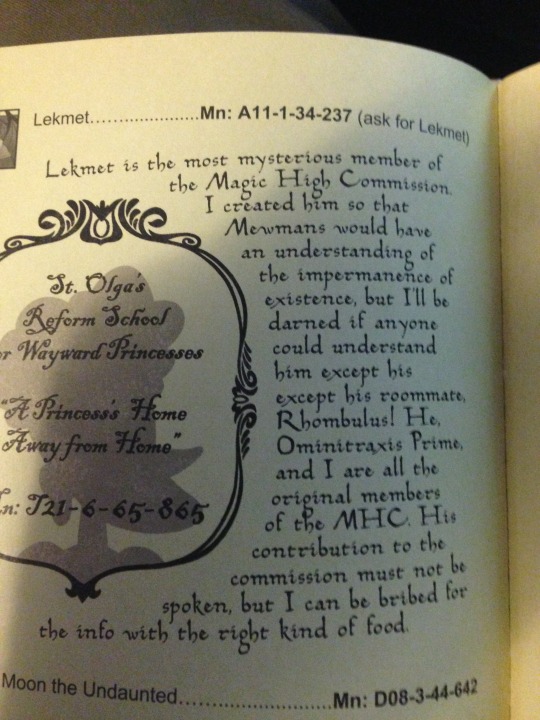 Lekmet......................Mn: A11-1-34-237 (ask for Lekmet)
Lekmet is the most mysterious member of
the Magic High Commission.
I created him so that
Mewmans would have
an understanding of
the impermanence of
existence, but I'll be
darned if anyone
could understand
him except his
except his roommate,
Rhombulus! He,
Ominitraxis Prime,
and I are all the
original members
of the MHC. His
contribution to the
commission must not be
spoken, but I can be bribed for
the info with the right kind of food.
St. Olga's
Reform School
or Wayward Princesses
"A Princess's Home
Away from Home"
n: T21-6-65-865
Moon the Undaunted..........................Mn: D08-3-44-642